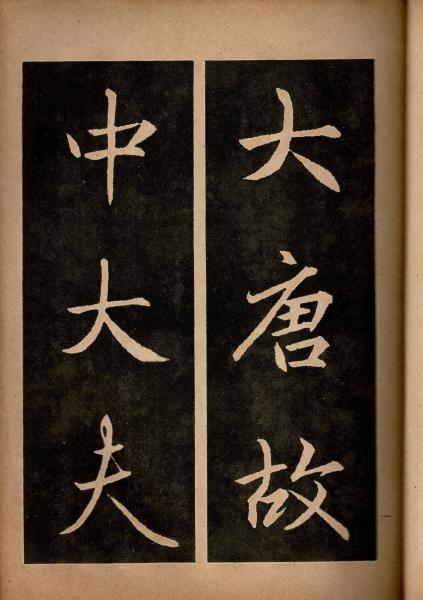 大唐故
中大夫